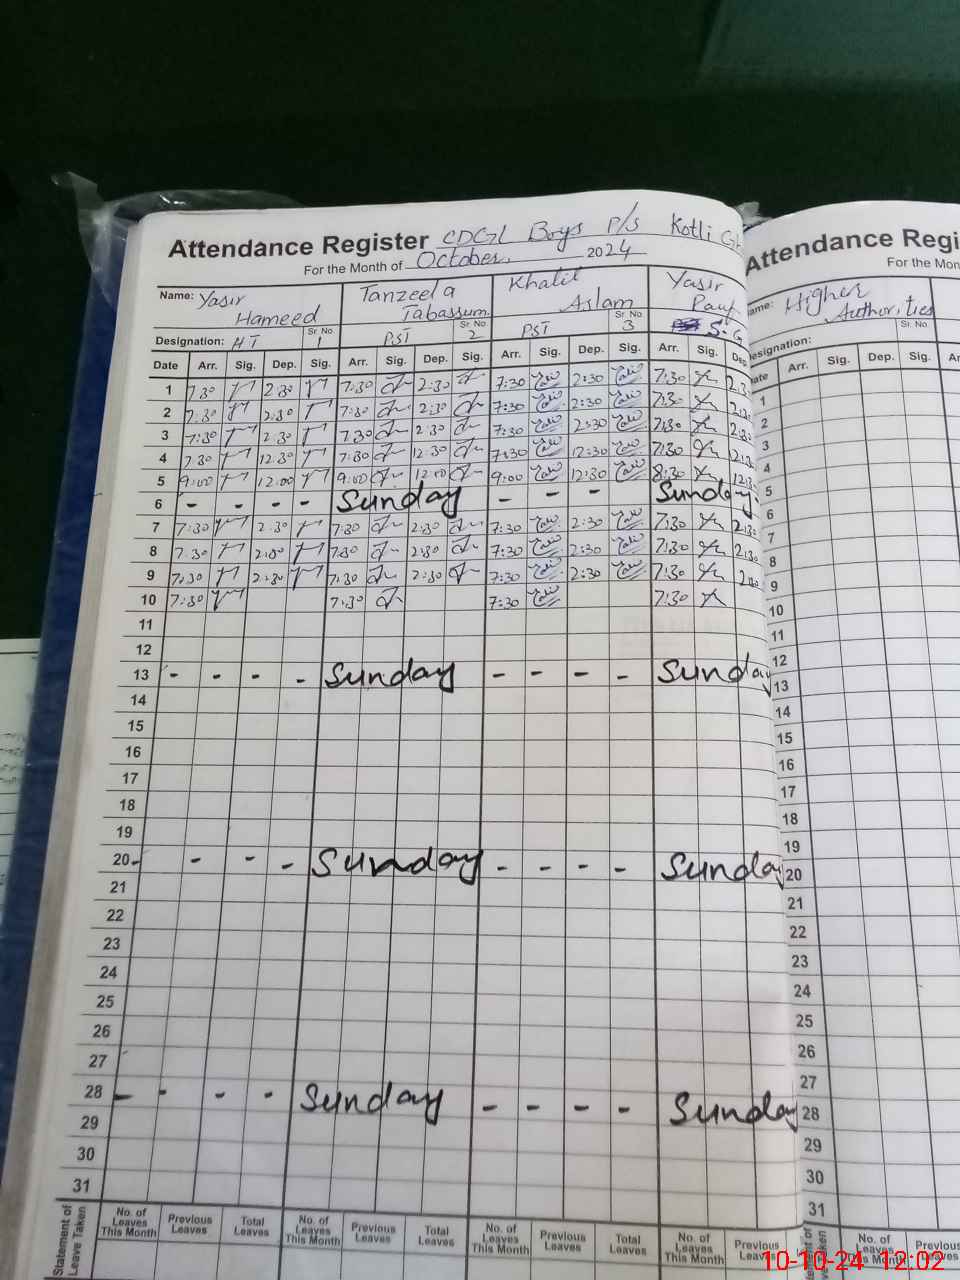 Attendance Register CDGL Boys P/S Kotli
For the Month of October, 2024
Name: Yasir Hameed Tanzeela Tabassum Khalil Aslam Yasir Rauf
Designation: HT Sr No. 1 PST Sr No. 2 PST Sr No. 3 S.G
Date Arr. Sig. Dep. Sig. Arr. Sig. Dep. Sig. Arr. Sig. Dep. Sig. Arr. Sig. Dep
1 7:30 2:30 7:30 2:30 7:30 2:30 7:30 2:3
2 7:30 2:30 7:30 2:30 7:30 2:30 7:30
3 7:30 2:30 7:30 2:30 7:30 2:30 7:30 2:3
4 7:30 12:30 7:30 12:30 7:30 12:30 7:30 12:3
5 9:00 12:00 9:00 12:00 9:00 12:30 8:30 12:
6 - - - - Sunday - - - Sunday
7 7:30 2:30 7:30 2:30 7:30 2:30 7:30 2:30
8 7:30 2:30 7:30 2:30 7:30 2:30 7:30 2:30
9 7:30 2:30 7:30 2:30 7:30 2:30 7:30
10 7:30 7:30 7:30 7:30
11
12
13 - - - - Sunday - - - - Sunday
14
15
16
17
18
19
20 - - - - Sunday - - - - Sunday
21
22
23
24
25
26
27
28 - - - - Sunday - - - - Sunday
29
30
31
Statement of Leave Taken
No. of Leaves This Month Previous Leaves Total Leaves No. of Leaves This Month Previous Leaves Total Leaves No. of Leaves This Month Previous Leaves Total Leaves No. of Leaves This Month Previous Leaves
Attendance Regi
For the Mon
ame: Higher Authorities
esignation: Sr No.
ate Arr. Sig. Dep. Sig. Ar
1
2
3
4
5
6
7
8
9
10
11
12
13
14
15
16
17
18
19
20
21
22
23
24
25
26
27
28
29
30
31
No. of Leaves This Month Previous Leaves
10-10-24 12:02